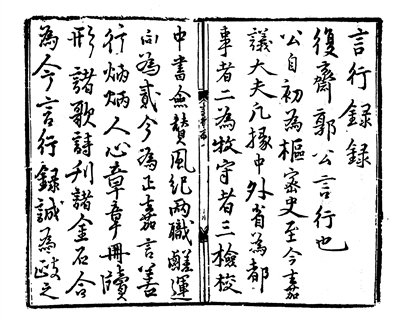 言行録録
復齋郭公言行也
公自初為樞密史至今嘉
議大夫凡掾中外省為都
事者二為牧守者三檢校
中書僉贊風紀兩職鹺運
向為貳今為正嘉言善
行炳炳人心章章冊牘
形諸歌詩刊諸金石合
為今言行録誠為之